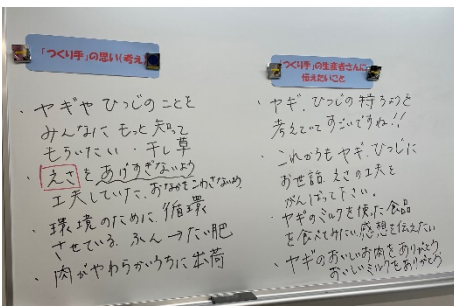 「つくり手」の思い(考え)
・ヤギやひつじのことを
みんなにもっと知って
もらいたい ・干し草
・えさをあげすぎないよう
工夫していた、おなかをこわさないため
・環境のために、循環
させている ふん→たい肥
・肉がやわらかいうちに出荷
「つくり手」の生産者さんに
伝えたいこと
・ヤギ、ひつじの持ちようと
考えていてすごいですね!!
・これからもヤギ、ひつじに
お世話、えさの工夫を
がんばって下さい。
・ヤギのミルクを使った食品
を食べてみたい、感想を伝えたい
・ヤギのおいしいお肉をありがとう
おいしいミルクをありがとう